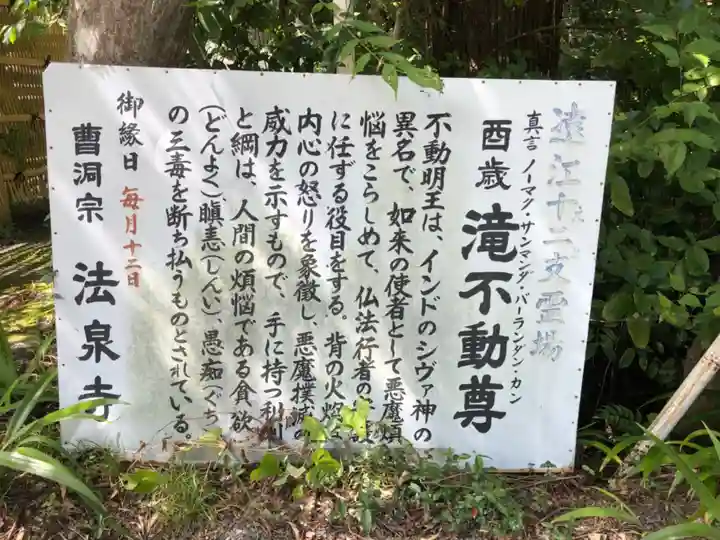 遠江十二支霊場
真言 ノーマグ・サンマンダ・バーラングン・カン
酉歳 滝不動尊
不動明王は、インドのシヴァ神の
異名で、如来の使者として悪魔煩
悩をこらしめて、仏法行者の
に任ずる役目をする。背の火焔
内心の怒りを象徴し、悪魔撲滅の
威力を示すもので、手に持つ利剣
と綱は、人間の煩悩である貪欲
(どんよく)、瞋恚(しんい)、愚痴(ぐち)
の三毒を断ち払うものとされている。
御縁日 毎月十二日
曹洞宗 法泉寺